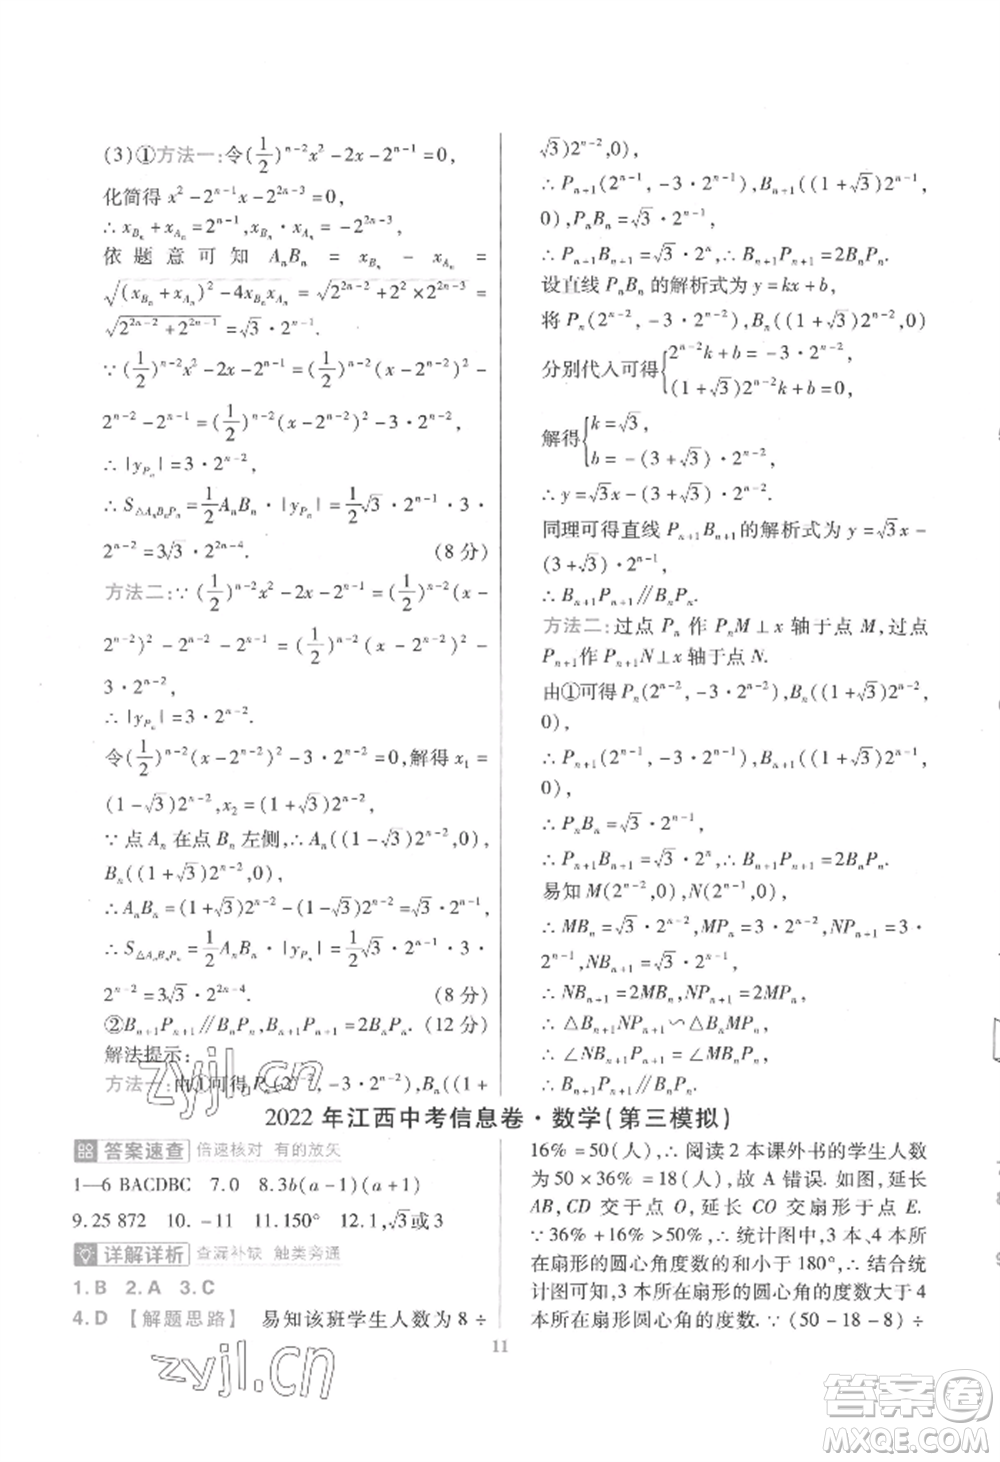 (3)①方法一:令(1/2)^{n-2}x²-2x-2^{n-1}=0,
化简得 x²-2^{n-1}x-2^{2n-3}=0,
∴x_{B_n}+x_{A_n}=2^{n-1},x_{B_n}·x_{A_n}=-2^{2n-3},
依题意可知 A_nB_n = x_{B_n} - x_{A_n} =
√((x_{B_n}+x_{A_n})²-4x_{B_n}x_{A_n})=√(2^{2n-2}+2²×2^{2n-3})=
√(2^{2n-2}+2^{2n-1})=√3·2^{n-1}.
∵(1/2)^{n-2}x²-2x-2^{n-1}=(1/2)^{n-2}(x-
2^{n-2})²-2^{n-2}-2^{n-1}=(1/2)^{n-2}(x-2^{n-2})²-3·2^{n-2},
∴|y_{P_n}|=3·2^{n-2},
∴S_{△A_nB_nP_n}=1/2A_nB_n·|y_{P_n}|=1/2√3·2^{n-1}·3·
2^{n-2}=3√3·2^{2n-4}. (8分)
方法二:∵(1/2)^{n-2}x²-2x-2^{n-1}=(1/2)^{n-2}(x-
2^{n-2})²-2^{n-2}-2^{n-1}=(1/2)^{n-2}(x-2^{n-2})²-
3·2^{n-2},
∴|y_{P_n}|=3·2^{n-2}.
令(1/2)^{n-2}(x-2^{n-2})²-3·2^{n-2}=0,解得x₁=
(1-√3)2^{n-2},x₂=(1+√3)2^{n-2},
∵点A_n在点B_n左侧,∴A_n((1-√3)2^{n-2},0),
B_n((1+√3)2^{n-2},0),
∴A_nB_n=(1+√3)2^{n-2}-(1-√3)2^{n-2}=√3·2^{n-1},
∴S_{△A_nB_nP_n}=1/2A_nB_n·|y_{P_n}|=1/2√3·2^{n-1}·3·
2^{n-2}=3√3·2^{2n-4}. (8分)
②B_{n+1}P_{n+1}∥B_nP_n,B_{n+1}P_{n+1}=2B_nP_n.(12分)
解法提示:
方法一:由①可得P_n(2^{n-2},-3·2^{n-2}),B_n((1+
√3)2^{n-2},0),
∴P_{n+1}(2^{n-1},-3·2^{n-1}),B_{n+1}((1+√3)2^{n-1},
0),P_nB_n=√3·2^{n-1},
∴P_{n+1}B_{n+1}=√3·2^n,∴B_{n+1}P_{n+1}=2B_nP_n.
设直线P_nB_n的解析式为y=kx+b,
将P_n(2^{n-2},-3·2^{n-2}),B_n((1+√3)2^{n-2},0)
分别代入可得{2^{n-2}k+b=-3·2^{n-2},
(1+√3)2^{n-2}k+b=0,
解得{k=√3,
b=-(3+√3)·2^{n-2},
∴y=√3x-(3+√3)·2^{n-2}.
同理可得直线P_{n+1}B_{n+1}的解析式为y=√3x-
(3+√3)·2^{n-1},
∴B_{n+1}P_{n+1}∥B_nP_n.
方法二:过点P_n作P_nM⊥x轴于点M,过点
P_{n+1}作P_{n+1}N⊥x轴于点N.
由①可得P_n(2^{n-2},-3·2^{n-2}),B_n((1+√3)2^{n-2},
0),
∴P_{n+1}(2^{n-1},-3·2^{n-1}),B_{n+1}((1+√3)2^{n-1},
0),
∴P_nB_n=√3·2^{n-1},
∴P_{n+1}B_{n+1}=√3·2^n,∴B_{n+1}P_{n+1}=2B_nP_n.
易知M(2^{n-2},0),N(2^{n-1},0),
∴MB_n=√3·2^{n-2},MP_n=3·2^{n-2},NP_{n+1}=3·
2^{n-1},NB_{n+1}=√3·2^{n-1},
∴NB_{n+1}=2MB_n,NP_{n+1}=2MP_n,
∴△B_{n+1}NP_{n+1}∽△B_nMP_n,
∴∠NB_{n+1}P_{n+1}=∠MB_nP_n,
∴B_{n+1}P_{n+1}∥B_nP_n.
2022年江西中考信息卷·数学(第三模拟)
答案速查 倍速核对 有的放矢
1—6 BACDBC 7.0 8.3b(a-1)(a+1)
9.25 872 10.-11 11.150° 12.1,√3或3
详解详析 查漏补缺 触类旁通
1.B 2.A 3.C
4.D 【解题思路】 易知该班学生人数为8÷
16%=50(人),∴阅读2本课外书的学生人数
为50×36%=18(人),故A错误.如图,延长
AB,CD交于点O,延长CO交扇形于点E.
∵36%+16%>50%,∴统计图中,3本、4本所
在扇形的圆心角度数的和小于180°,∴结合统
计图可知,3本所在扇形的圆心角的度数大于4
本所在扇形圆心角的度数.∵(50-18-8)÷
11
zyjl.cn
zyjl.cn
答案卷
MXQE.COM